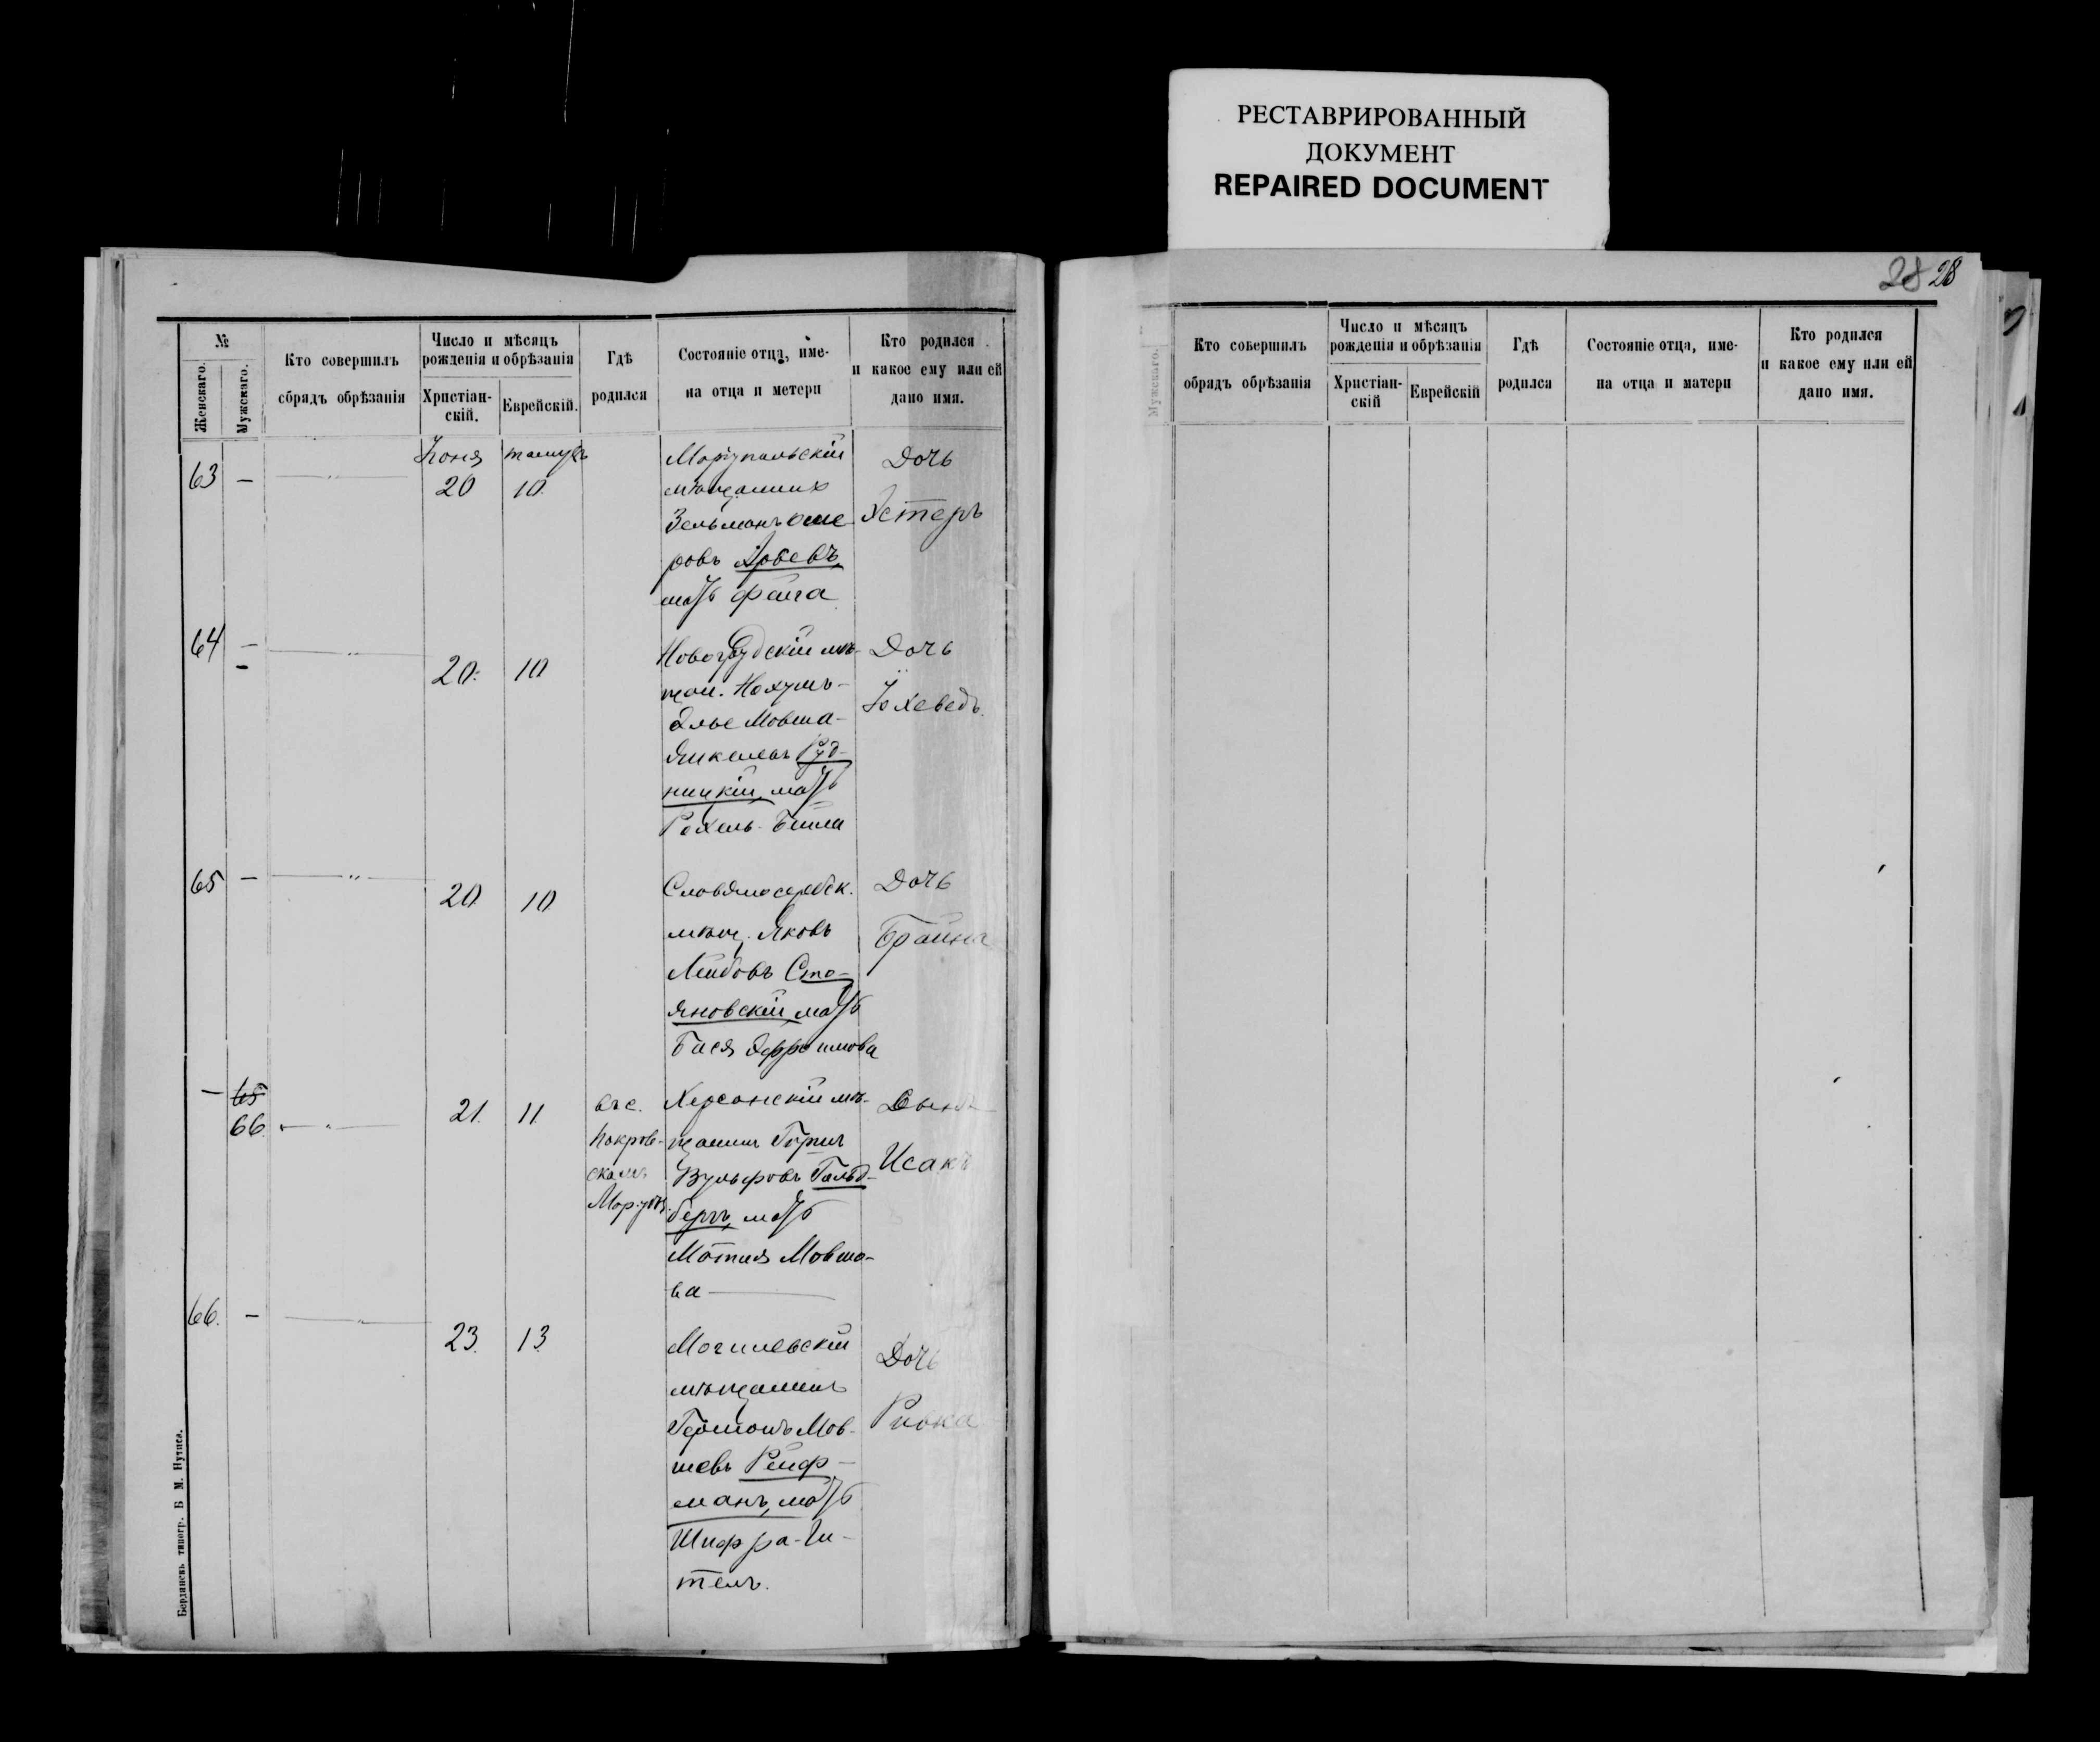 РЕСТАВРИРОВАННЫЙ
ДОКУМЕНТ
REPAIRED DOCUMENT
28 28
№
Женскаго.
Мужскаго.
Кто совершилъ
обрядъ обрѣзанія
Число и мѣсяцъ
рожденія и обрѣзанія
Христіан-
скій.
Еврейскій.
Гдѣ
родился
Состояніе отца, име-
на отца и метери
Кто родился
и какое ему или ей
дано имя.
63
—
Іюня
20
тамуз
10
Маріупольскій
мѣщанинъ
Зельманъ Оше-
ровъ
мать Фейга
Дочь
Эстеръ
64
—
20.
10
Новогрудскій мѣ-
щан. Нохумъ-
Элье Мовша-
Янкелевъ Руд-
ницкій, мать
Рохель-Бейла
Дочь
Іохеведъ
65
—
20
10
Славяносербск.
мѣщ. Яковъ
Лейбовъ Сто-
яновскій, мать
Бася Эфроимова
Дочь
Брайна
—
65
66
21.
11
въ с.
Покров-
скомъ
Маріуп.
Херсонскій мѣ-
щанинъ
Вульфовъ Гольд-
бергъ, мать
Мовшо-
ва
Сынъ
Исакъ
66.
—
23.
13
Могилевскій
мѣщанинъ
Гершонъ Мов-
шевъ Рейф-
манъ, мать
Шифра-Ги-
тель.
Дочь
Ривка
Бердянскъ типогр. Б М. Нутиса.
Мужскаго.
Кто совершилъ
обрядъ обрѣзанія
Число и мѣсяцъ
рожденія и обрѣзанія
Христіан-
скій
Еврейскій
Гдѣ
родился
Состояніе отца, име-
на отца и матери
Кто родился
и какое ему или ей
дано имя.